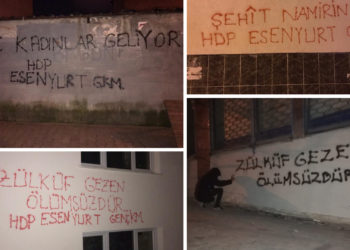 KADINLAR GELİYOR
HDP
ESENYURT GKM.
ŞEHİT NAMIRIN
HDP ESENYURT
ZÜLKÜF GEZEN
ÖLÜMSÜZDÜR
HDP ESENYURT GENÇKM.
ZÜLKÜF GEZEN
ÖLÜMSÜZDÜR